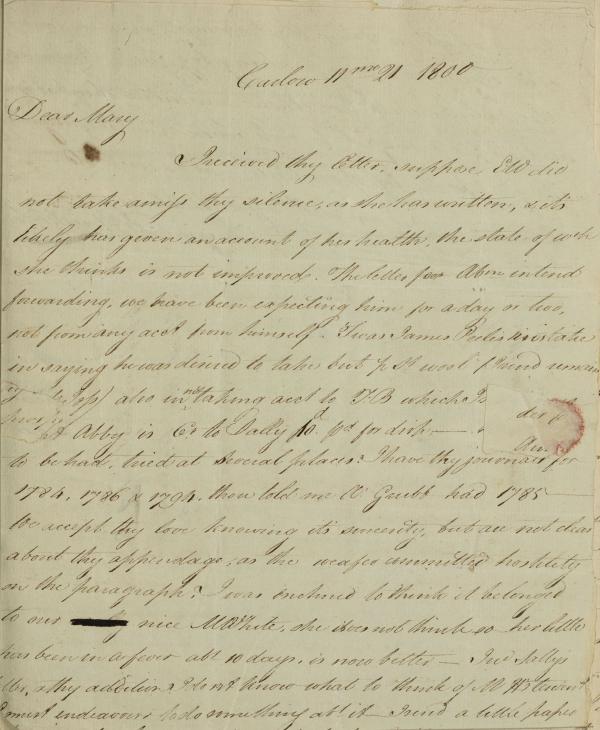 Carlow 11mo 21 1800
Dear Mary
I received thy letter, suppose EW did
not take amiss thy silence, as she has written, & its
likely has given an account of her health, the state of wch
she thinks is not improved. The letter for Abm intend
forwarding, we have been expecting him for a day or two,
not from any acct from himself. Twas James mistake
in saying he was desired to take but pr St wool
also in not taking acct to T.B which
Abby is Cr to Sally pd for
to be had, tried at several places: I have thy journals for
1784, 1786 & 1794, thou told me R Grubb had 1785
We accept thy love knowing its sincerity, but are not clear
about thy appendage, as the wafer committed hostility
on the paragraph: I was inclined to think it belonged
to our nice MWhite, she does not think so her little
has been in a fever abt 10 days, is now better —
& thy addition: I do not know what to think of M
must endeavour to do something abt it — I send a little paper